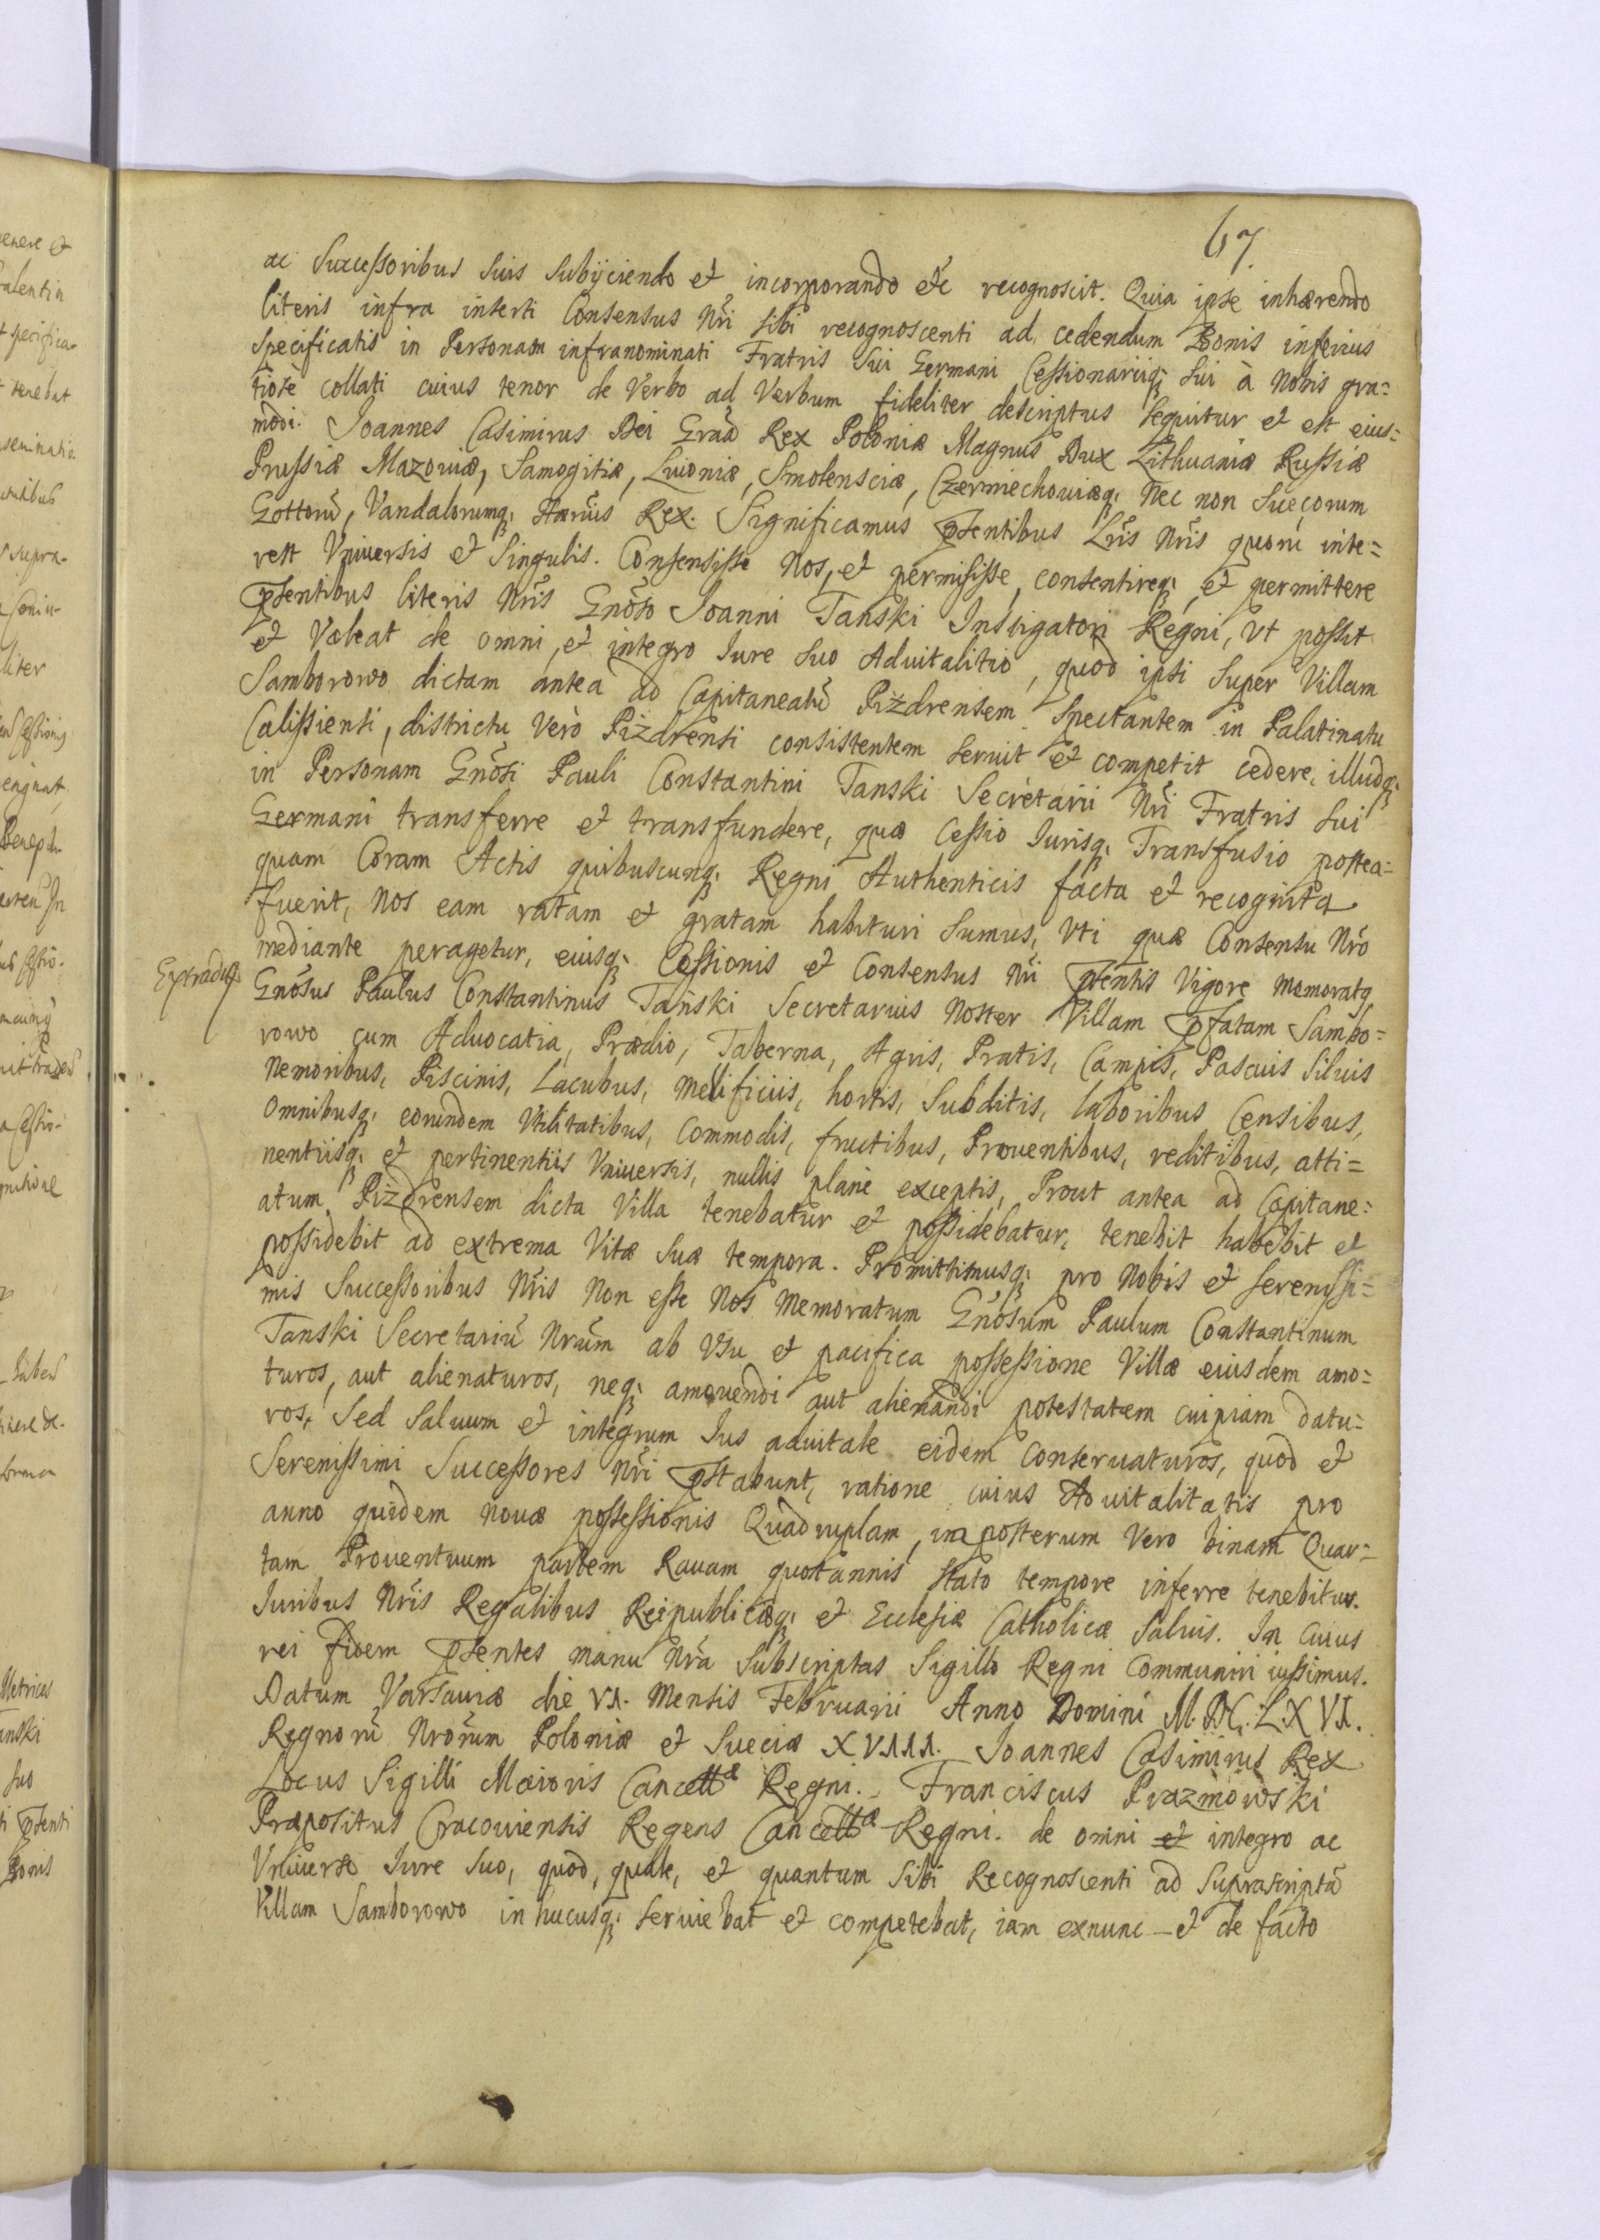 67
ac Successoribus suis subijciendo et incorporando etc recognoscit. Quia ipse inhærendo
literis infra inserti Consensus Nri sibi recognoscenti ad cedendum Bonis inferius
specificatis in Personam infranominati Fratris sui Germani Cessionariiq; sui à Nobis gra=
tiose collati cuius tenor de Verbo ad Verbum fideliter descriptus sequitur et est eius=
modi. Joannes Casimirus Dei Grãa Rex Poloniæ Magnus Dux Lithuaniæ Russiæ
Prussiæ Mazoviæ, Samogitiæ, Livoniæ, Smolensciæ, Czerniechoviæq; Nec non Suecorum
Gottorũ, Vandalorumq; Hærius Rex. Significamus pñsentibus Lris Nris quorũ inte=
rest Vniversis et Singulis. Consensisse Nos, et permisisse, consentireq; et permittere
pñsentibus literis Nris Gnõso Joanni Tanski Instigatori Regni, Vt possit
et Valeat de omni, et integro Iure suo Aduitalitio, quod ipsi super Villam
Samborowo dictam antea ad Capitaneatũ Pizdrensem spectantem in Palatinatu
Calissiensi, districtu Verò Pizdrensi consistentem seruit et competit cedere, illudq;
in Personam Gnõsi Pauli Constantini Tanski Secretarii Nri Fratris sui
Germani transferre et transfundere, quæ Cessio Iurisq; Transfusio postea=
quam Coram Actis quibuscunq; Regni Authenticis facta et recognita
fuerit, Nos eam ratam et gratam habituri sumus, Vti quæ Consensu Nro
mediante peragetur, eiusq; Cessionis et Consensus Nri pñsentis Vigore Memoratq
Gnõsus Paulus Constantinus Tański Secretarius Noster Villam pfatam Sambo=
rowo cum Aduocatia, Prædio, Taberna, Agris, Pratis, Campis, Pascuis Siluis
Nemoribus, Piscinis, Lacubus, Mellificiis, hortis, Subditis, laboribus Censibus,
Omnibusq; eorundem Vtilitatibus, Commodis, fructibus, Prouentibus, reditibus, atti=
nentiisq; et pertinentiis Vniuersis, nullis planè exceptis, Prout antea ad Capitane=
atum Pizdrensem dicta Villa tenebatur et possidebatur, tenebit habebit et
possidebit ad extrema Vitæ suæ tempora. Promittimusq; pro Nobis et Serenissi=
mis Successoribus Nris Non esse Nos Memoratum Gnõsum Paulum Constantinum
Tanski Secretariũ Nrũm ab Vsu et pacifica possessione Villæ eiusdem amo=
turos, aut alienaturos, neq; amouendi aut alienandi potestatem cuipiam datu=
ros, Sed Saluum et integrum Ius aduitale eidem Conseruaturos, quod et
Serenissimi Successores Nri pstabunt, ratione cuius Aduitalitatis pro
anno quidem Nouæ possessionis Quadruplam, in posterum Vero binam Quar=
tam Prouentuum partem Rauam quotannis stato tempore inferre tenebitur.
Iuribus Nris Regalibus Reipublicæq; et Ecclesiæ Catholicæ Saluis. In Cuius
rei fidem pñsentes manu Nra Subscriptas Sigillo Regni Communiri iussimus.
Datum Varsauiæ die VI. Mensis Februarii Anno Domini M.DC.LXVI.
Regnorũ Nrorum Poloniæ et Sueciæ XVIII. Joannes Casimirus Rex
Locus Sigilli Maioris Cancellæ Regni. Franciscus Prazmowski
Præpositus Cracouiensis Regens Cancellæ Regni. de omni et integro ac
Vniuerso Iure suo, quod, quale, et quantum Sibi Recognoscenti ad Suprascriptã
Villam Samborowo in hucusq; seruiebat et competebat, iam exnunc et de facto